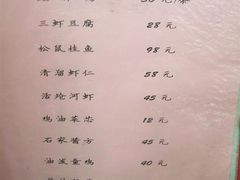 三虾豆腐 28 元
松鼠桂鱼 98 元
清溜虾仁 58 元
活呛河虾 45 元
鸡油菜芯 12 元
石家酱方 45 元
油泼童鸡 40 元